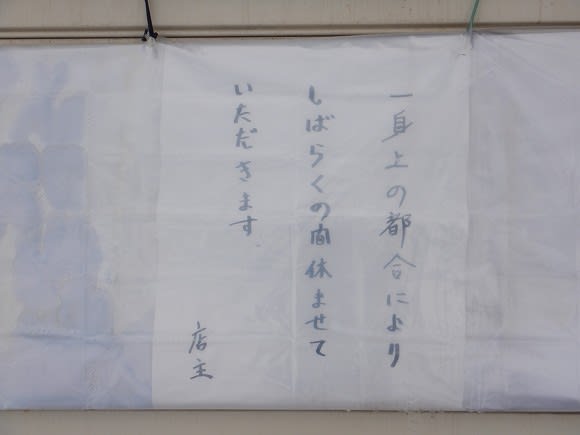 一身上の都合により
しばらくの間休ませて
いただきます
店主